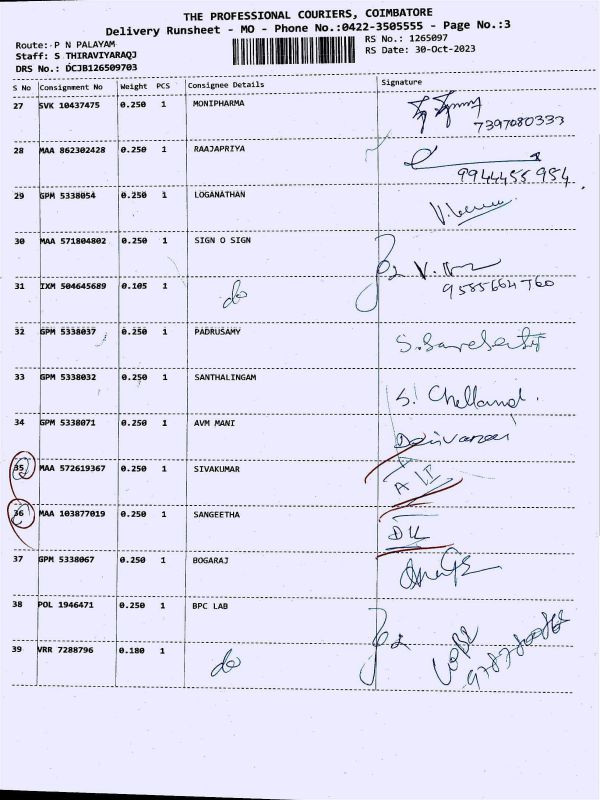 THE PROFESSIONAL COURIERS, COIMBATORE
Delivery Runsheet - MO - Phone No.:0422-3505555 - Page No.:3
Route: P N PALAYAM RS No.: 1265097
Staff: S THIRAVIYARAQJ RS Date: 30-Oct-2023
DRS No.: DCJB126509703
S No Consignment No Weight PCS Consignee Details Signature
27 SVK 10437475 0.250 1 MONIPHARMA
7397080333
28 MAA 862302428 0.250 1 RAAJAPRIYA
9944455 954
29 GPM 5338054 0.250 1 LOGANATHAN
30 MAA 571804802 0.250 1 SIGN O SIGN
31 IXM 504645689 0.105 1 do 9585664760
32 GPM 5338037 0.250 1 PADRUSAMY
33 GPM 5338032 0.250 1 SANTHALINGAM
34 GPM 5338071 0.250 1 AVM MANI
35 MAA 572619367 0.250 1 SIVAKUMAR
36 MAA 103877019 0.250 1 SANGEETHA
37 GPM 5338067 0.250 1 BOGARAJ
38 POL 1946471 0.250 1 BPC LAB
39 VRR 7288796 0.180 1 do